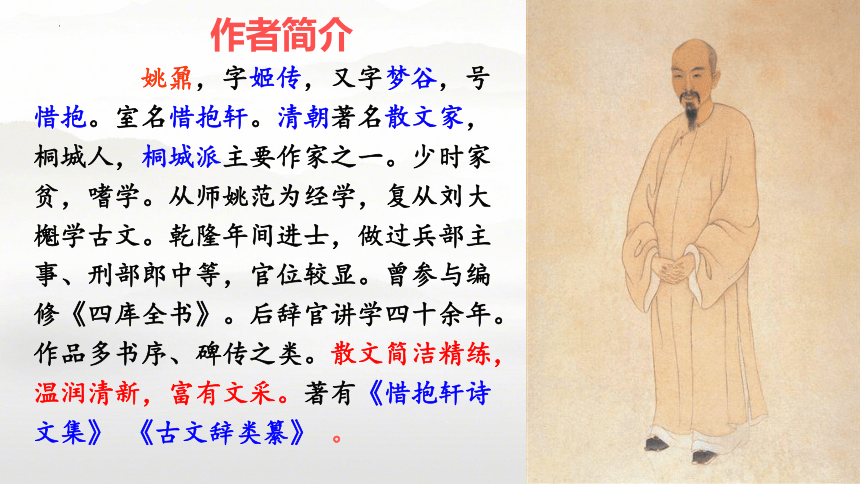 作者简介
姚鼐，字姬传，又字梦谷，号
惜抱。室名惜抱轩。清朝著名散文家，
桐城人，桐城派主要作家之一。少时家
贫，嗜学。从师姚范为经学，复从刘大
櫆学古文。乾隆年间进士，做过兵部主
事、刑部郎中等，官位较显。曾参与编
修《四库全书》。后辞官讲学四十余年。
作品多书序、碑传之类。散文简洁精练，
温润清新，富有文采。著有《惜抱轩诗
文集》 《古文辞类纂》 。